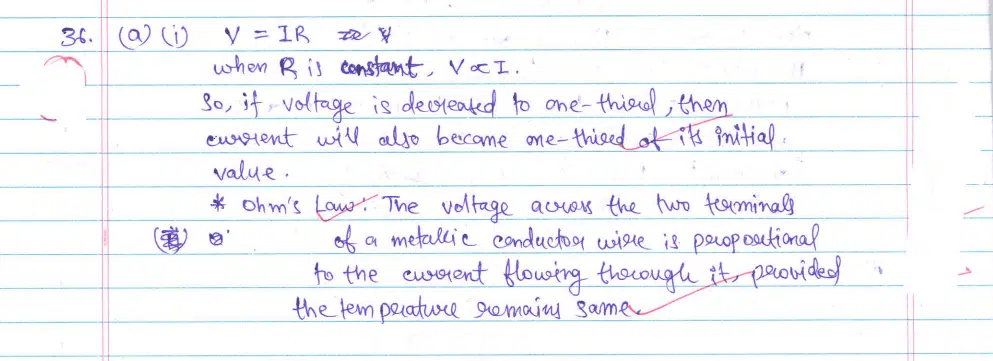 36. (a) (i) V = IR
when R is constant, V ∝ I.
So, if voltage is decreased to one-third, then
current will also become one-third of its initial
value.
* Ohm's Law: The voltage across the two terminals
of a metallic conductor wire is proportional
to the current flowing through it, provided
the temperature remains same.